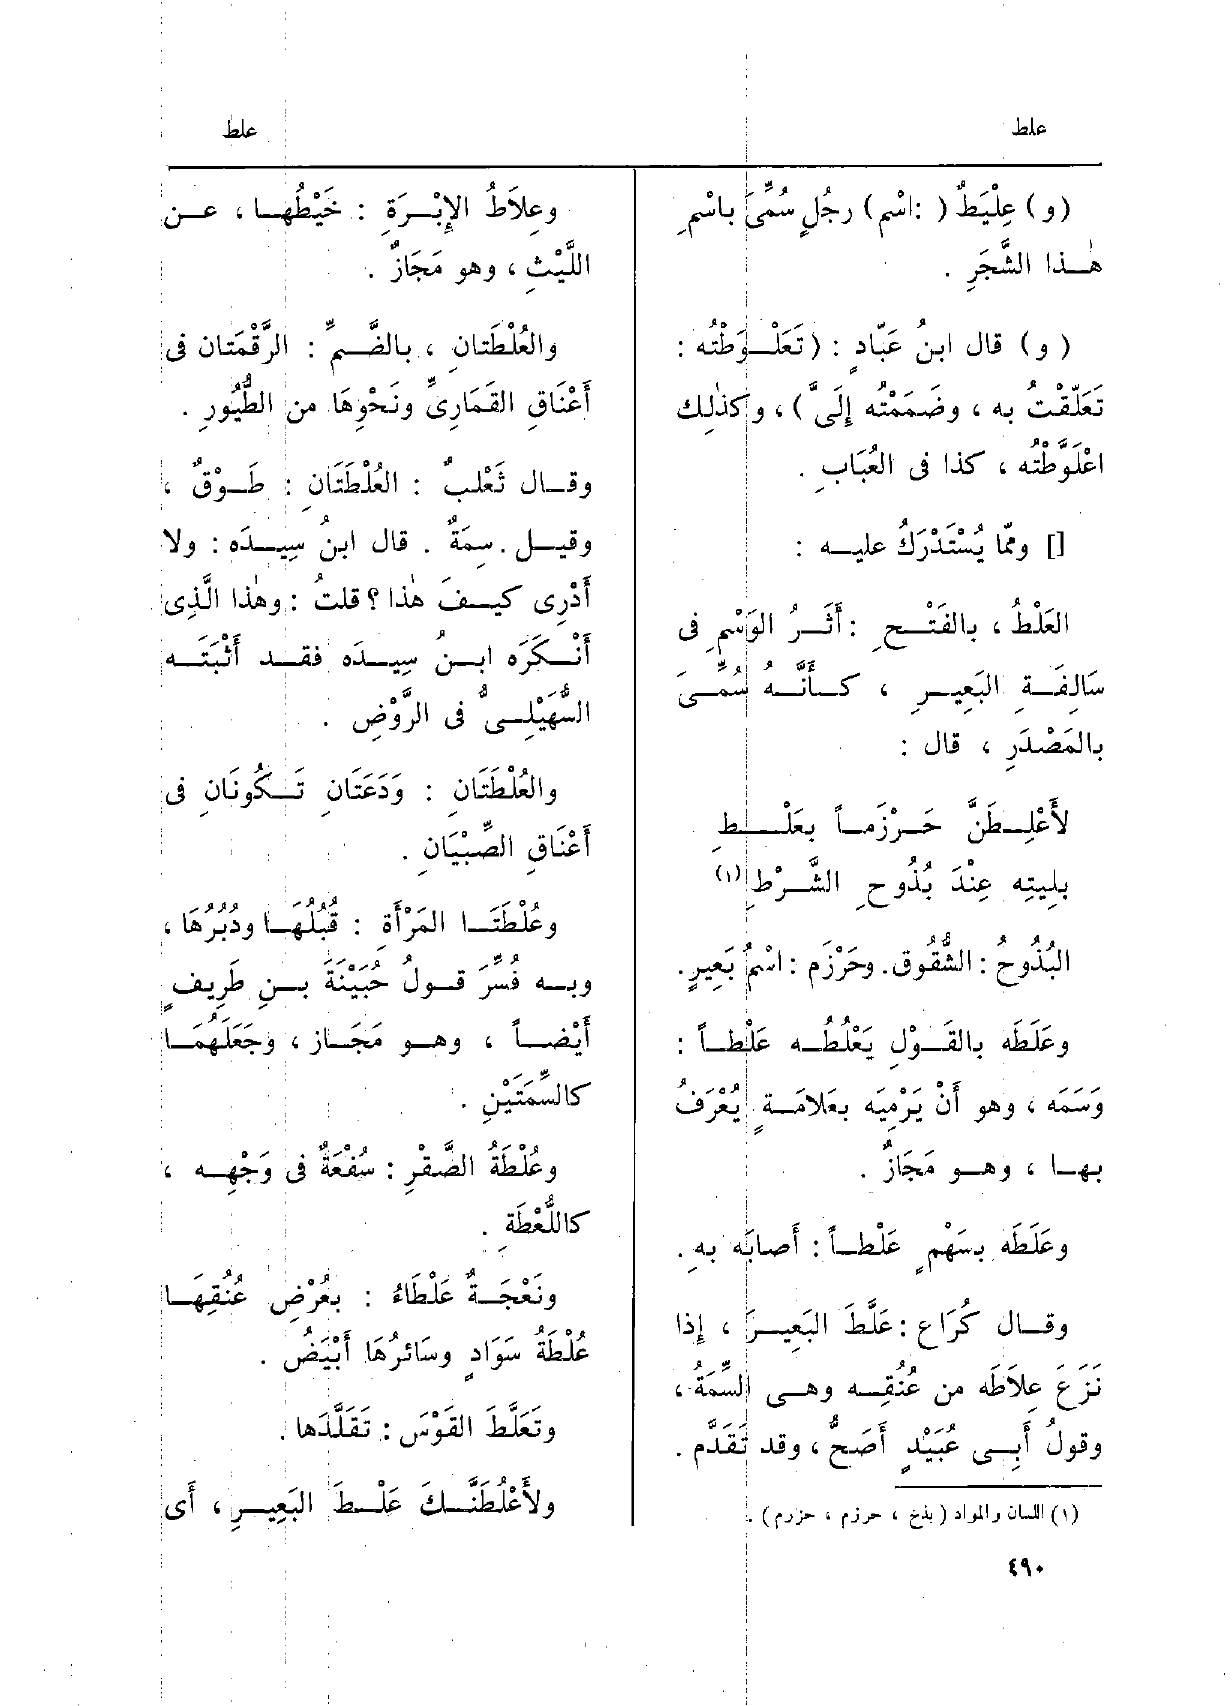 علط
علط
(و) عِلْيَطٌ ( : اسْم) رجُلٍ سُمِّىَ باسْمِ
هٰذا الشَّجَرِ .
(و) قال ابنُ عَبّادٍ : (تَعَلْوَطْتُه :
تَعَلَّقْتُ به ، وضَمَمْتُه إِلَىَّ) ، وكذٰلِك
اعْلَوَّطْتُه ، كذا فى العُبَابِ .
[] ومّا يُسْتَدْرَكُ عليه :
العَلْطُ ، بالفَتْحِ : أَثَرُ الوَسْمِ فى
سَالِفَةِ البَعِيرِ ، كأَنَّه سُمِّىَ
بالمَصْدَرِ ، قال :
لأَعْلِطَنَّ حَرْزَماً بعَلْطِ
بلِيتِه عِنْدَ بُذُوحِ الشَّرْطِ (١)
البُذُوحُ : الشُّقُوق . وحَرْزَم : اسْمُ بَعِيرٍ .
وعَلَطَه بالقَوْلِ يَعْلُطُه عَلْطاً :
وَسَمَه ، وهو أَنْ يَرْمِيَه بعَلامَةٍ يُعْرَفُ
بها ، وهو مَجَازٌ .
وعَلَطَه بسَهْمٍ عَلْطاً : أَصابَه بهِ .
وقال كُرَاع : عَلَّطَ البَعِيرَ ، إِذا
نَزَعَ عِلاَطَه من عُنُقِه وهى السِّمَةُ ،
وقولُ أَبِى عُبَيْدٍ أَصَحُّ ، وقد تَقَدَّم .
(١) اللسان والمواد (بذح ، حرزم ، حزرم) .
وعِلاَطُ الإِبْرَةِ : خَيْطُها ، عن
اللَّيْثِ ، وهو مَجَازٌ .
والعُلْطَتانِ ، بالضَّمِّ : الرَّقْمَتان فى
أَعْنَاقِ القَمَارِىِّ ونَحْوِهَا من الطُّيُورِ .
وقال ثَعْلبٌ : العُلْطَتَانِ : طَوْقٌ ،
وقيل . سِمَةٌ . قال ابنُ سِيدَه : ولا
أَدْرِى كيفَ هٰذا ؟ قلتُ : وهٰذا الَّذِى
أَنْكَرَه ابنُ سِيدَه فقد أَثْبَتَه
السُّهَيْلِىُّ فى الرَّوْضِ .
والعُلْطَتَانِ : وَدَعَتَانِ تَكُونَانِ فى
أَعْنَاقِ الصِّبْيَانِ .
وعُلْطَتَا المَرْأَةِ : قُبُلُهَا ودُبُرُهَا ،
وبه فُسِّرَ قولُ حُبَيْنَةَ بنِ طَرِيفٍ
أَيْضاً ، وهو مَجَاز ، وجَعَلَهُمَا
كالسِّمَتَيْنِ .
وعُلْطَةُ الصَّقْرِ : سُفْعَةٌ فى وَجْهِه ،
كاللُّعْطَةِ .
ونَعْجَةٌ عَلْطَاءُ : بعُرْضِ عُنُقِهَا
عُلْطَةُ سَوَادٍ وسَائرُهَا أَبْيَضُ .
وتَعَلَّطَ القَوْسَ : تَقَلَّدَها .
ولأَعْلُطَنَّكَ عَلْطَ البَعِيرِ ، أَى
٤٩٠